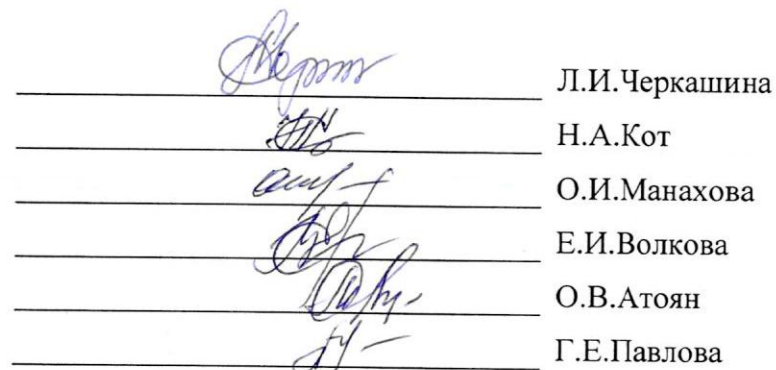 Л.И.Черкашина
Н.А.Кот
О.И.Манахова
Е.И.Волкова
О.В.Атоян
Г.Е.Павлова